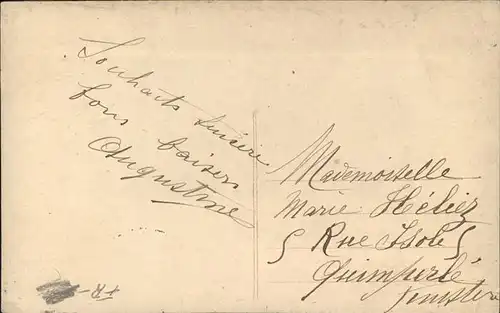 Souhaits sincère
bons baisers
Augustine
Mademoiselle
Marie Héliez
5 Rue Isole 5
Quimperlé
Finistère
FR-